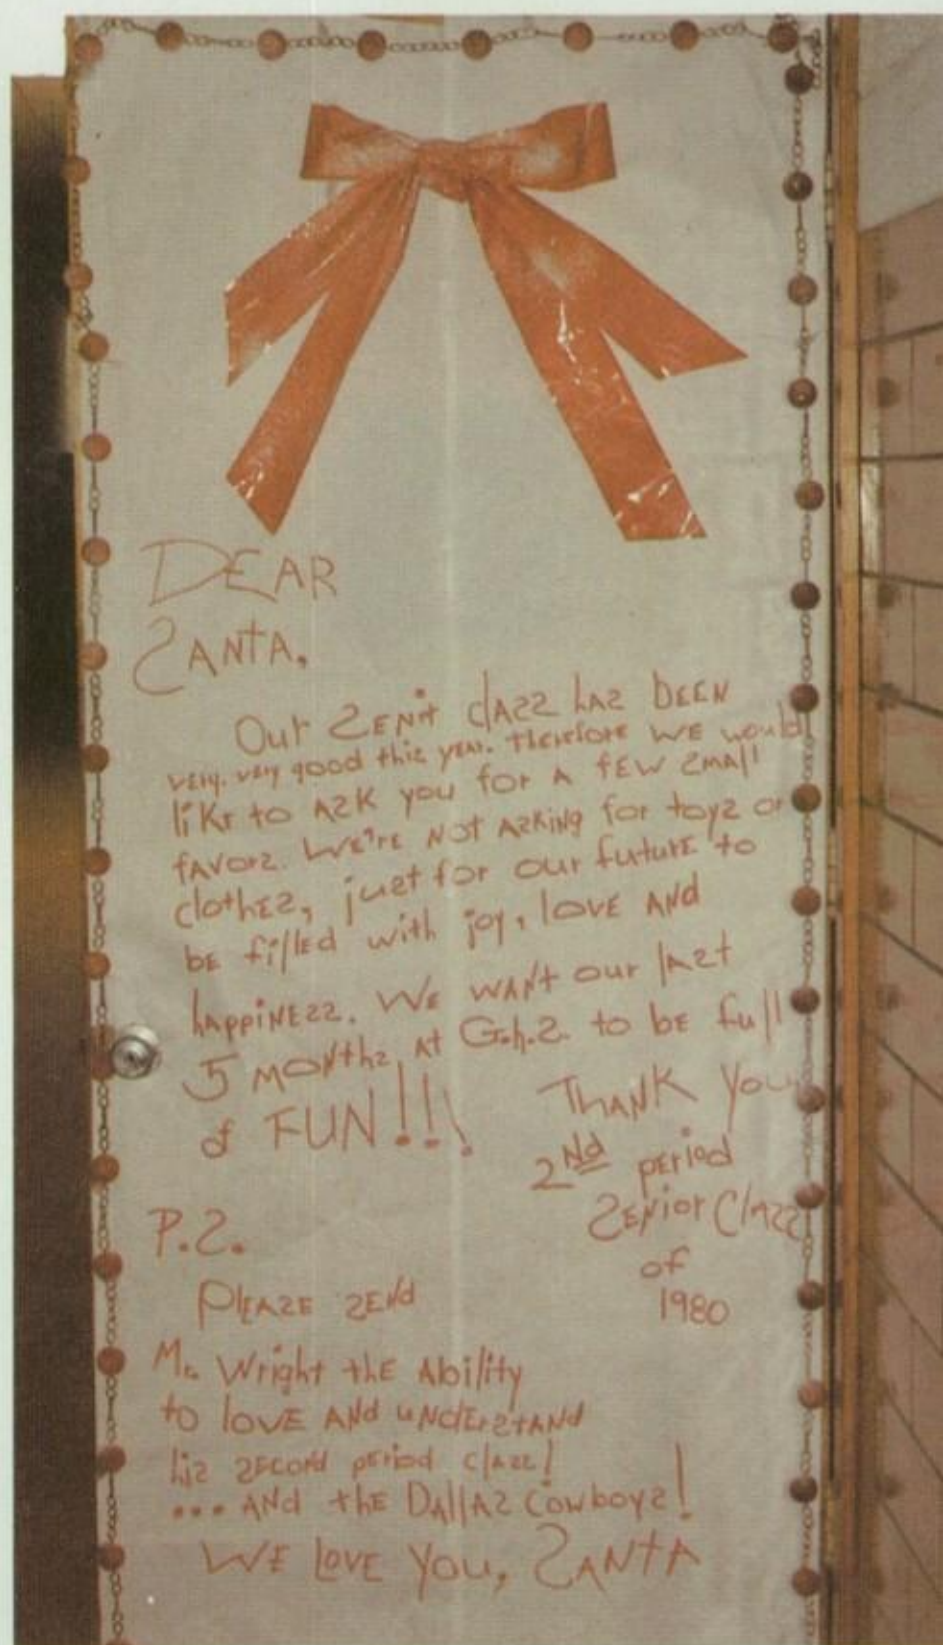 DEAR
SANTA,
Our SENiT clASS hAS bEEN
very, very good this year. therefore WE would
likE to ASK you for A fEW SmAll
fAvorS. WE'rE NOT ASKiNg for toyS or
clothES, just for our futurE to
bE fillEd with joy, lovE AND
hAppiNESS. WE wANt our lASt
5 MONthS At G.h.S. to bE full
of FUN!!!
THANK You
2Nd pEriod
SENior ClASS
of
1980
P.S.
PlEASE SENd
Mr. Wright thE Ability
to lovE ANd uNdErStANd
hiS SEcoNd pEriod clASS!
... ANd thE DAllAS CowboyS!
WE lovE You, SANtA